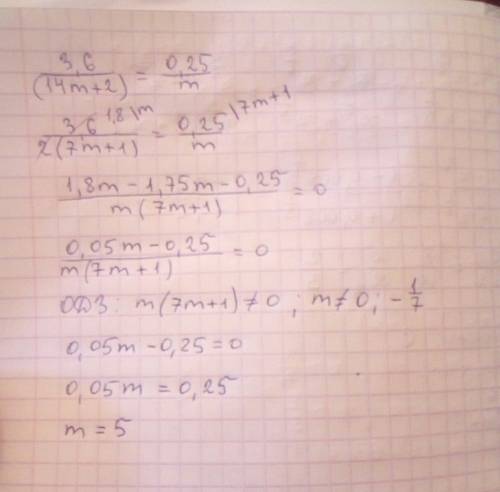 3,6/(14m+2) = 0,25/m
3,6 1,8\m/2(7m+1) = 0,25\7m+1/m
1,8m - 1,75m - 0,25/m(7m+1) = 0
0,05m - 0,25/m(7m+1) = 0
ОДЗ: m(7m+1) ≠ 0 ; m ≠ 0; - 1/7
0,05m - 0,25 = 0
0,05m = 0,25
m = 5